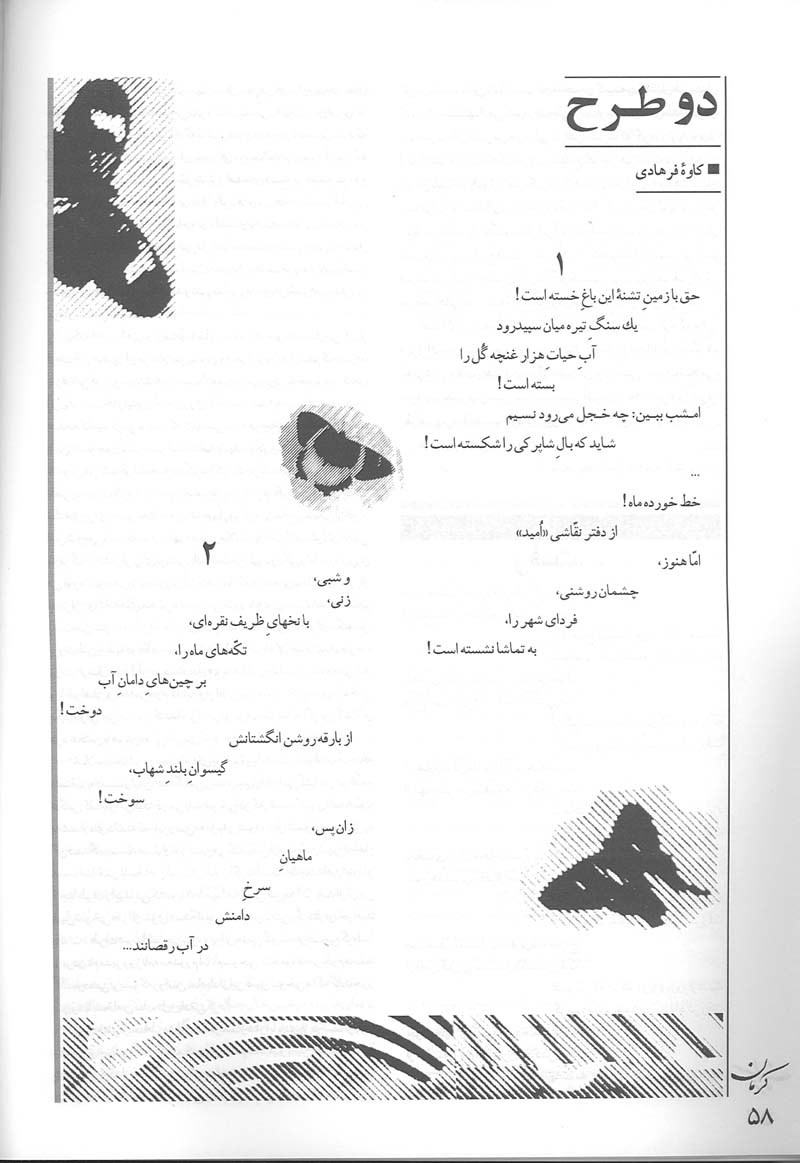 دو طرح
■ کاوهٔ فرهادی
۱
حق با زمینِ تشنهٔ این باغِ خسته است!
یك سنگِ تیره میان سپیدرود
آبِ حیاتِ هزار غنچه گُل را
بسته است!
امشب ببین: چه خجل می‌رود نسیم
شاید که بالِ شاپرکی را شکسته است!
...
خط خورده ماه!
از دفتر نقّاشی «اُمید»
امّا هنوز،
چشمان روشنی،
فردای شهر را،
به تماشا نشسته است!
۲
و شبی،
زنی،
با نخهایِ ظریف نقره‌ای،
تکّه‌های ماه را،
بر چین‌هایِ دامانِ آب
دوخت!
از بارقه روشن انگشتانش
گیسوانِ بلندِ شهاب،
سوخت!
زان پس،
ماهیانِ
سرخِ
دامنش
در آب رقصانند...
کرمان
۵۸